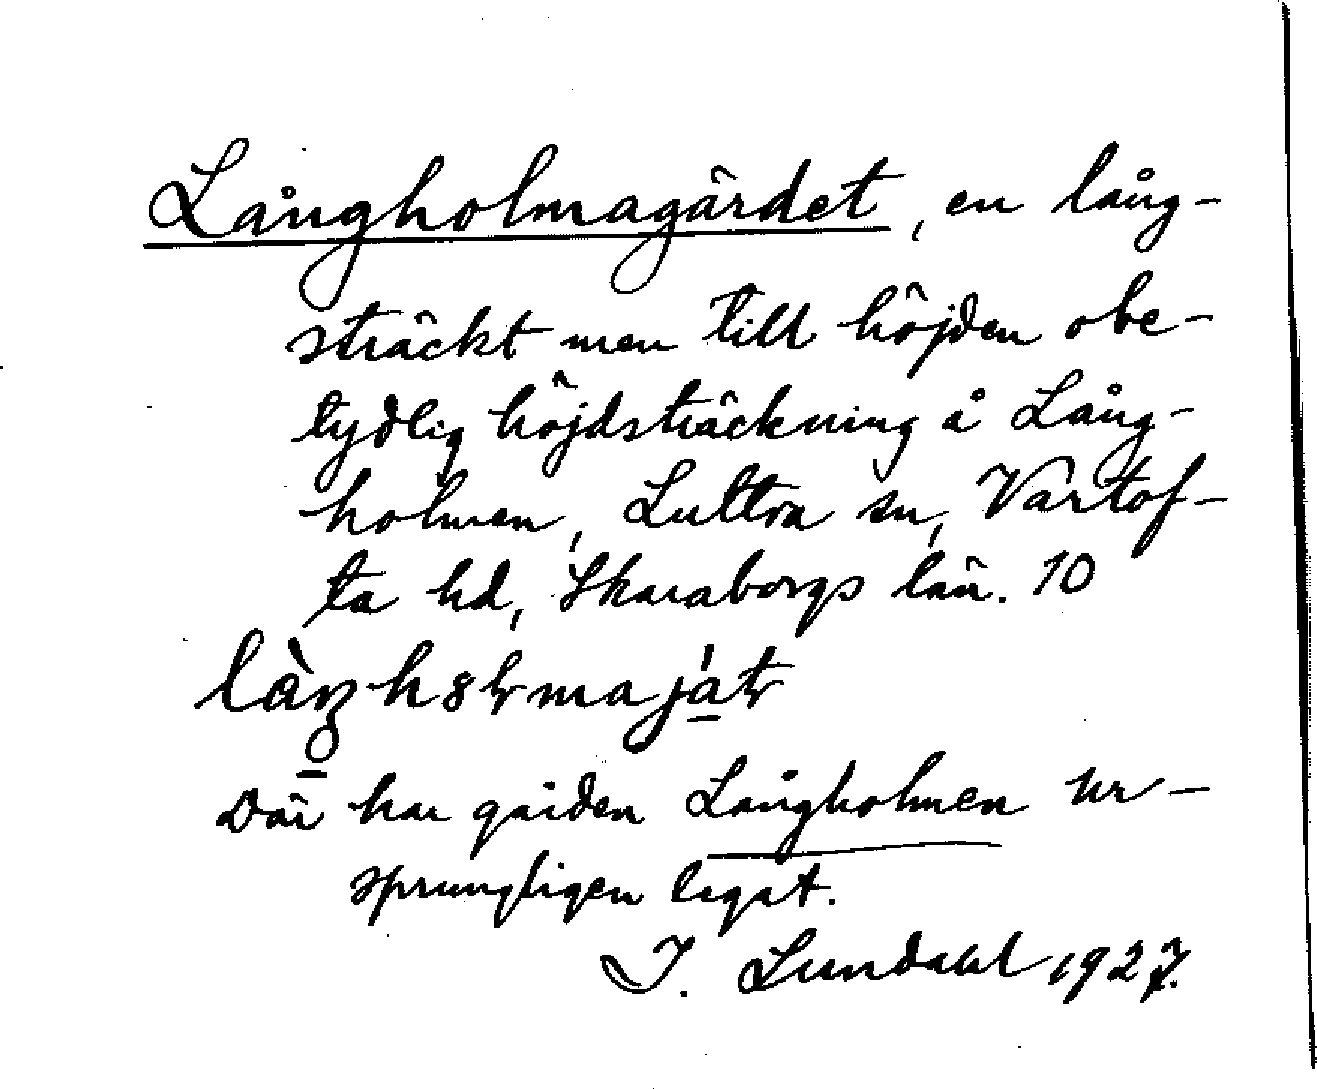 Långholmagärdet, en lång-
sträckt men till höjden obe-
tydlig höjdsträckning å Lång-
holmen, Luttra sn, Vartof-
ta hd, Skaraborgs län. 10
Där har gården Långholmen ur-
sprungligen legat.
I. Lundahl 1927.